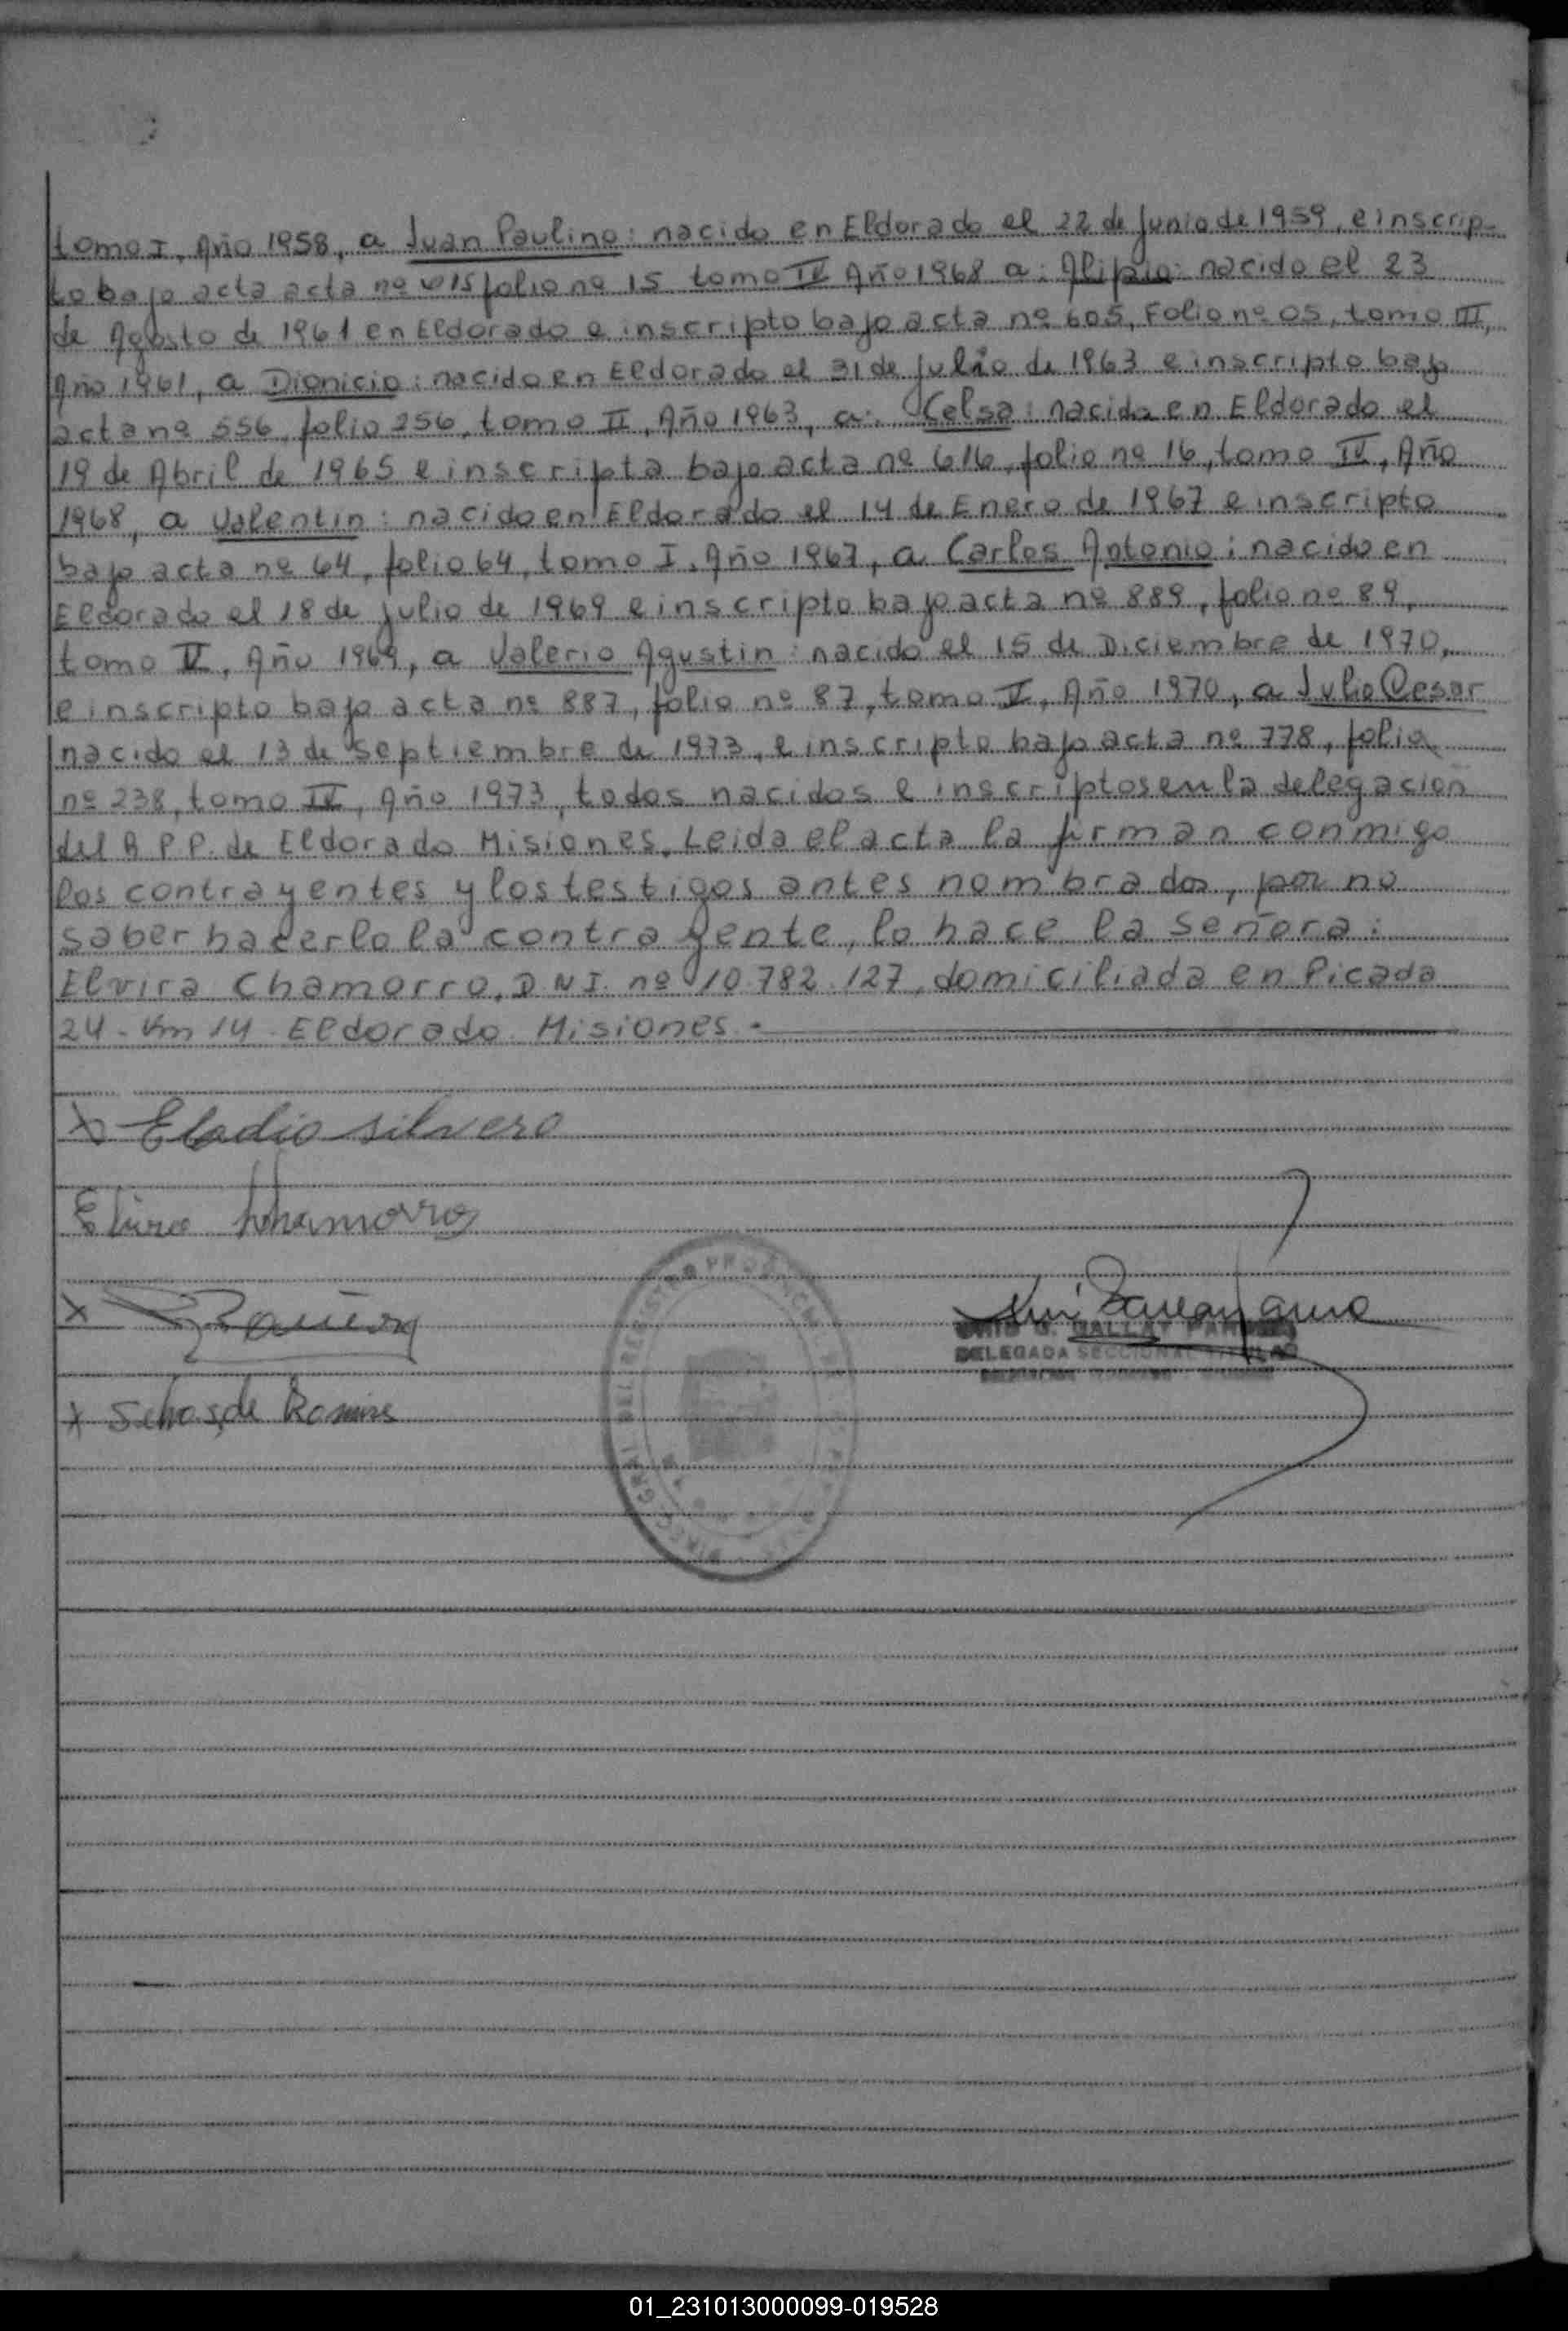 tomo I, Año 1958, a Juan Paulino: nacido en Eldorado el 22 de Junio de 1959, e inscrip-
to bajo acta acta nº 615 folio nº 15 tomo IV Año 1968 a: Alipio: nacido el 23
de Agosto de 1961 en Eldorado e inscripto bajo acta nº 605, Folio nº 05, tomo III,
Año 1961, a Dionicio: nacido en Eldorado el 31 de julio de 1963 e inscripto bajo
acta nº 556, folio 256, tomo II, Año 1963, a: Celsa: nacida en Eldorado el
19 de Abril de 1965 e inscripta bajo acta nº 616, folio nº 16, tomo IV, Año
1968, a Valentin: nacido en Eldorado el 14 de Enero de 1967 e inscripto
bajo acta nº 64, folio 64, tomo I, Año 1967, a Carlos Antonio: nacido en
Eldorado el 18 de julio de 1969 e inscripto bajo acta nº 889, folio nº 89,
tomo V, Año 1969, a Valerio Agustin: nacido el 15 de Diciembre de 1970,
e inscripto bajo acta nº 887, folio nº 87, tomo V, Año 1970, a Julio Cesar
nacido el 13 de Septiembre de 1973, e inscripto bajo acta nº 778, folio
nº 238, tomo IV, Año 1973, todos nacidos e inscriptos en la delegacion
del R.P.P. de Eldorado Misiones. Leida el acta la firman conmigo
los contrayentes y los testigos antes nombrados, por no
saber hacerlo la contrayente, lo hace la Señora:
Elvira Chamorro. D.N.I. nº 10.782.127, domiciliada en Picada
24 - Km 14 - Eldorado. Misiones.-
x Eladio silvero
Elvira Chamorro
x
x
DELEGADA SECCIONAL TITULAR
01_231013000099-019528